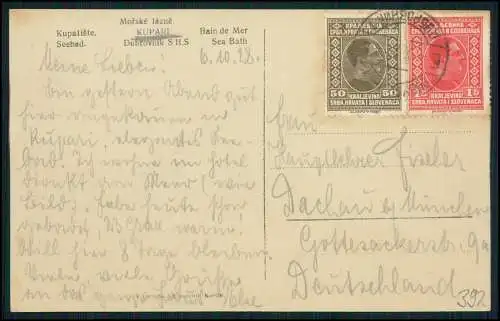 Mořské lázně
Kupalište. KUPARI Bain de Mer
Seebad. Dubrovnik S H S Sea Bath
6.10.28.
Meine Lieben!
Bin gestern Abend gut
hier angekommen in
Kupari, elegantes See-
bad. Ich wohne im Hotel
direkt am Meer (wie
Bild). Habe heute schon
gebadet, Grad warm.
Will hier 8 Tage bleiben.
Viele viele Grüße
an das ganze Haus
КРАЉЕВИНА
СРБА, ХРВАТА И СЛОВЕНАЦА
50 50
KRALJEVINA
SRBA, HRVATA I SLOVENACA
КРАЉЕВИНА
СРБА, ХРВАТА И СЛОВЕНАЦА
1D 1D
KRALJEVINA
SRBA, HRVATA I SLOVENACA
Hauptlehrer
Dachau bei München
Gottesackerstr. 9a
Deutschland
392